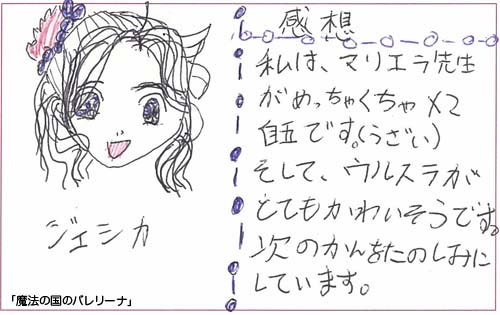 感想
私は、マリエラ先生
がめっちゃくちゃ×2
自五です。(うざい)
そして、ウルスラが
とてもかわいそうです。
次のかんをたのしみに
しています。
ジェシカ
「魔法の国のバレリーナ」